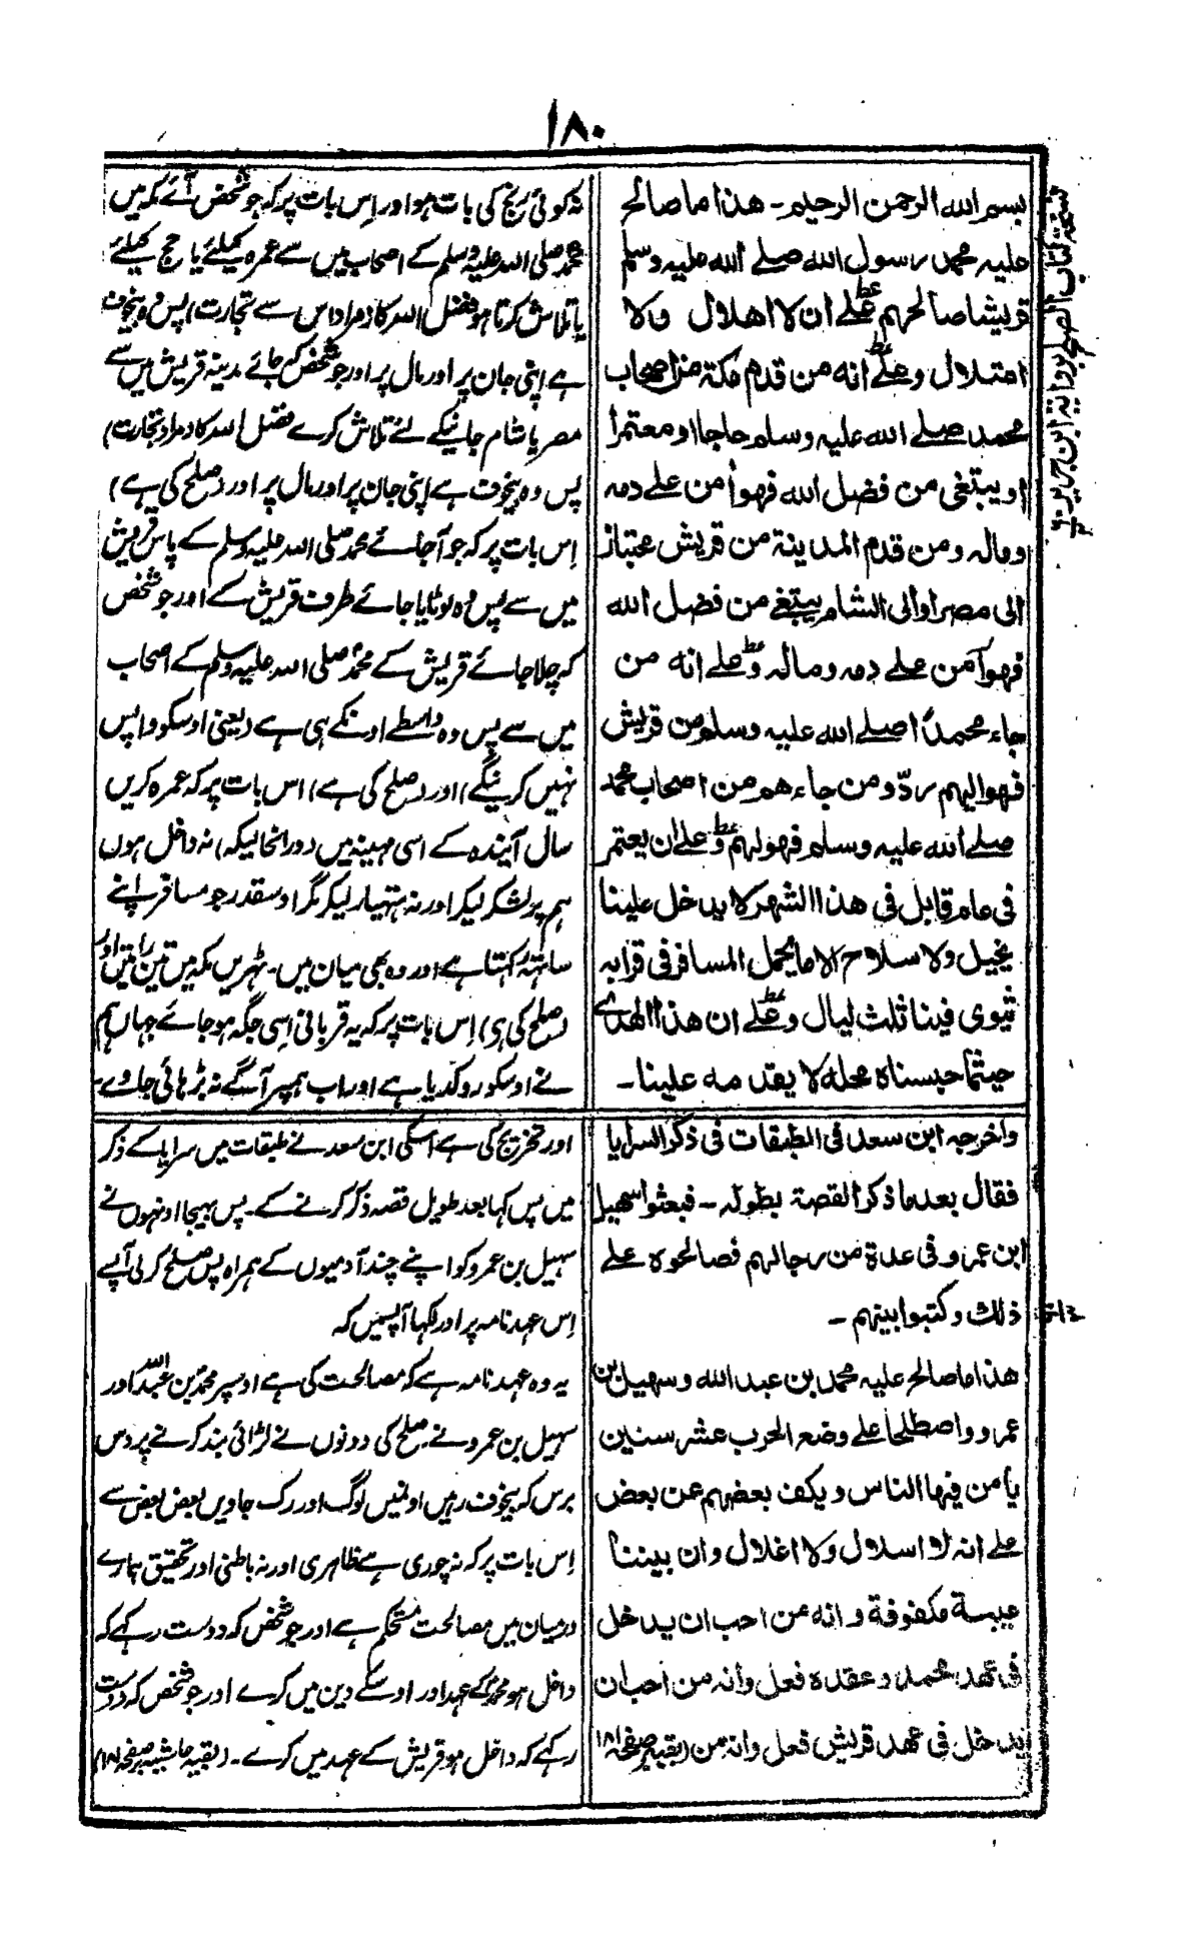 ۱۸۰
بسم الله الرحمن الرحيم۔ هذا ما صالح
عليه محمد رسول الله صلے الله عليه وسلم
قريشا صالحهم علے ان لا اهلال ولا
امتلال و علے انه من قدم مكة من اصحاب
محمد صلے الله عليه وسلم حاجا او معتمرا
او يبتغى من فضل الله فهو اٰمن علے دمه
و ماله و من قدم المدينة من قريش مجتاز
الى مصر او الى الشام يبتغے من فضل الله
فهو آمن علے دمه و ماله و علے انه من
جاء محمداً صلے الله عليه وسلم من قريش
فهو اليهم ردّ و من جاءهم من اصحاب محمد
صلے الله عليه وسلم فهو لهم و علے ان يعتمر
فى عام قابل فى هذا الشهر لا يدخل علينا
بخيل ولا سلاح الا ما يحمل المسافر فى قرابه
فيثوى فينا ثلث ليال و علے ان هذا الهدے
حيثما حبسناه محله لا يقدمه علينا۔
نہ کوئی رنج کی بات ہو اور اِس بات پر کہ جو شخص آئے مکہ میں
محمد صلی اللہ علیہ وسلم کے اصحاب میں سے عمرہ کیلئے یا حج کیلئے
یا تلاش کرتا ہو فضل اللہ کا (مراد اس سے تجارت) پس وہ بیخوف
ہے اپنی جان پر اور مال پر اور جو شخص کہ جائے مدینہ قریش میں سے
مصر یا شام جانیکے لئے تلاش کرے فضل اللہ کا (مراد تجارت)
پس وہ بیخوف ہے اپنی جان پر اور مال پر اور (صلح کی ہے)
اِس بات پر کہ جو آجائے محمد صلی اللہ علیہ وسلم کے پاس قریش
میں سے پس وہ لوٹایا جائے طرف قریش کے اور جو شخص
کہ چلا جائے قریش کے محمد صلی اللہ علیہ وسلم کے اصحاب
میں سے پس وہ واسطے اونکے ہی ہے (یعنی اوسکو واپس
نہیں کرینگے) اور (صلح کی ہے) اس بات پر کہ عمرہ کریں
سال آیندہ کے اسی مہینہ میں (در انحالیکہ) نہ داخل ہوں
ہم پر لشکر لیکر اور نہ ہتہیار لیکر مگر اوسقدر جو مسافر اپنے
ساتہہ رکہتا ہے اور وہ بھی میان میں۔ ٹہریں مکہ میں تین راتیں اور
(صلح کی ہی) اِس بات پر کہ یہ قربانی اِسی جگہ ہو جائے جہاں ہم
نے اوسکو روکدیا ہے اور اب ہمپر آگے نہ بڑہائی جاوے۔
و اخرجه ابن سعد فى الطبقات فى ذكر السرايا
فقال بعد ما ذكر القصة بطوله۔ فبعثوا سهيل
ابن عمرو فى عدة من رجالهم فصالحوه علے
ذلك و كتبوا بينهم۔
هذا ما صالح عليه محمد بن عبد الله و سهيل بن
عمرو و اصطلحا علے وضع الحرب عشر سنين
يأمن فيها الناس و يكف بعضهم عن بعض
علے انه لا اسلال ولا اغلال و ان بيننا
عيبة مكفوفة و انه من احب ان يدخل
فى عهد محمد و عقده فعل و انه من احب ان
يدخل فى عهد قريش فعل و انه من (بقيه بر صفحه ۱۸۱
اور تخریج کی ہے اسکی ابن سعد نے طبقات میں سرایا کے ذکر
میں پس کہا بعد طویل قصہ ذکر کرنے کے۔ پس بہیجا اونہوں نے
سہیل بن عمرو کو اپنے چند آدمیوں کے ہمراہ پس صلح کر لی آپسے
اِس عہد نامہ پر اور لکہا آپسمیں کہ
یہ وہ عہد نامہ ہے کہ مصالحت کی ہے اوسپر محمد بن عبد اللہ اور
سہیل بن عمرو نے صلح کی دونوں نے لڑائی بند کرنے پر دس
برس کہ بیخوف رہیں اونمیں لوگ اور رک جاویں بعض بعض سے
اِس بات پر کہ نہ چوری ہے ظاہری اور نہ باطنی اور تحقیق ہمارے
درمیان میں مصالحت مستحکم ہے اور جو شخص کہ دوست رکہے کہ
داخل ہو محمد کے عہد اور اوسکے دین میں کرے اور جو شخص کہ دوست
رکہے کہ داخل ہو قریش کے عہد میں کرے۔ (بقیہ حاشیہ بر صفحہ ۱۸۱)
نسخة كتاب الصلح برواية ابن جرير